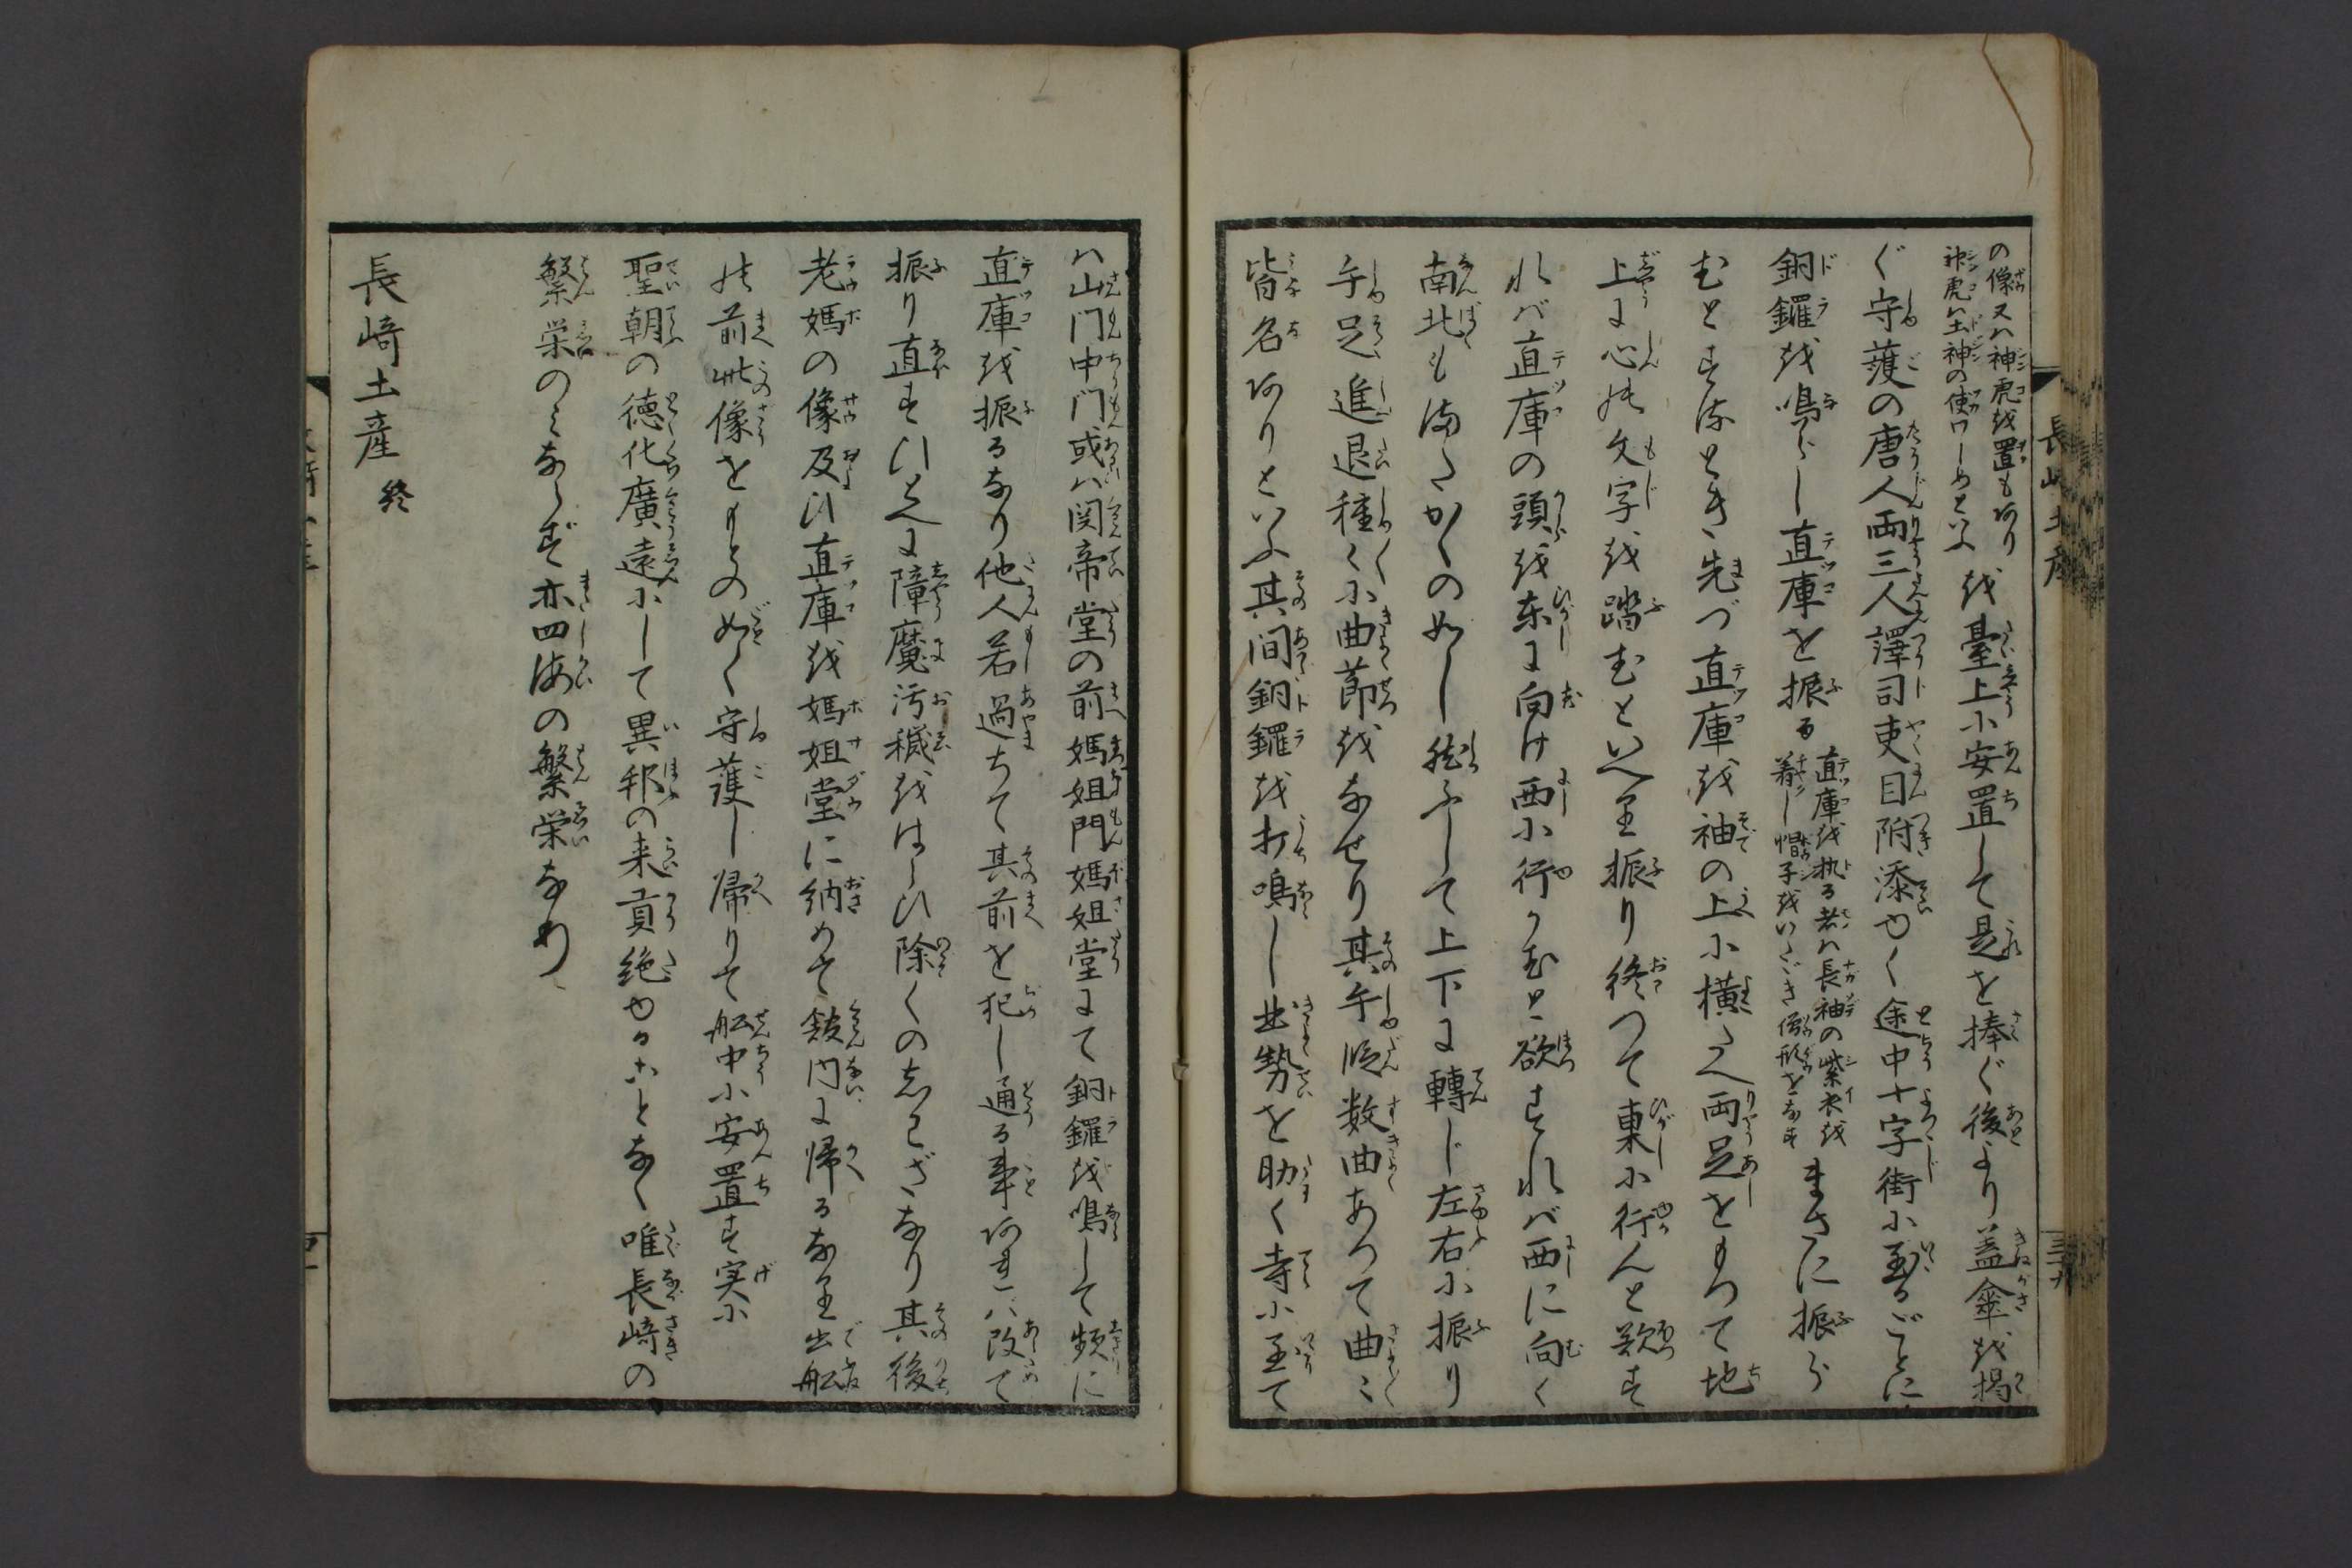 の像又ハ神虎を置もあり
神虎ハ土神の使ワしめといふ
を臺上に安置して是を捧ぐ後より蓋傘を掲
ぐ守護の唐人両三人譯司吏目附添ゆく途中十字街に至るごとに
銅鑼を鳴らし直庫を振る
直庫を執る者ハ長袖の紫衣を
着し帽子をいたゞき僧形をなす
まさに振ら
むとするとき先づ直庫を袖の上に横たへ両足をもつて地
上に心の文字を踏むといへり振り終つて東に行んと欲す
れバ直庫の頭を東に向け西に行かむと欲すれバ西に向く
南北もまたかくの如し然ふして上下に轉じ左右に振り
手足進退種々に曲節をなせり其手段数曲あつて曲々
皆名ありといふ其間銅鑼を打鳴し其勢を助く寺に至て
ハ山门中门或ハ関帝堂の前媽姐門媽姐堂にて銅鑼を鳴して頻に
直庫を振るなり他人若過ちて其前を犯し通る事あれハ改て
振り直すひとへに障魔汚穢をはらひ除くのわざなり其後
老媽の像及ひ直庫を媽姐堂に納めて舘内に帰るなり出舩
の前此像をもとの如く守護し帰りて舩中に安置す実に
聖朝の徳化廣遠にして異邦の来貢絶ゆることなく唯長﨑の
繁栄のみならず亦四海の繁栄なり
長﨑土産 終
長崎土産
三十九